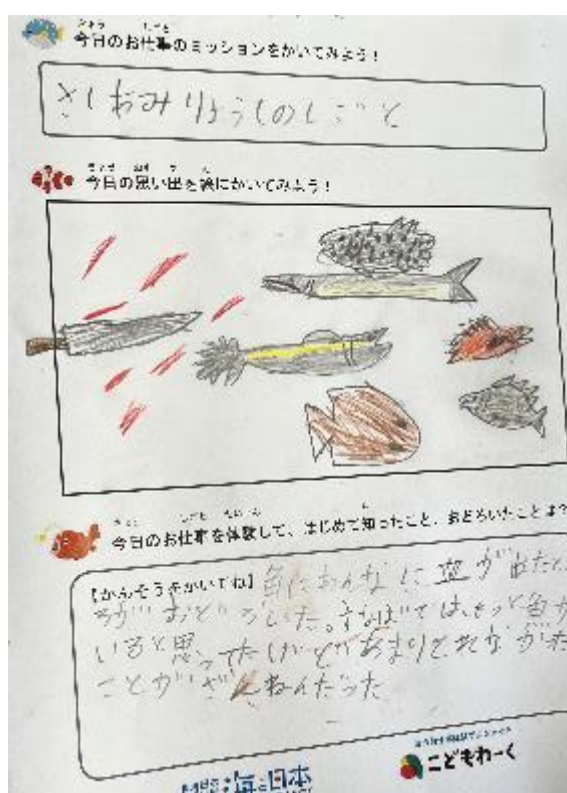 今日のお仕事のミッションをかいてみよう!
さしおさみりょうしのしごと
今日の思い出を絵にかいてみよう!
今日のお仕事を体験して、はじめて知ったこと、おどろいたことは?
【かんそうをかいてね】魚にあんなに血が出たとこ
ろがおどろいた。さなばではもっと魚が
いると思ってたけどあまりとれなかった
ことがざんねんだった
海と日本
こどもわーく